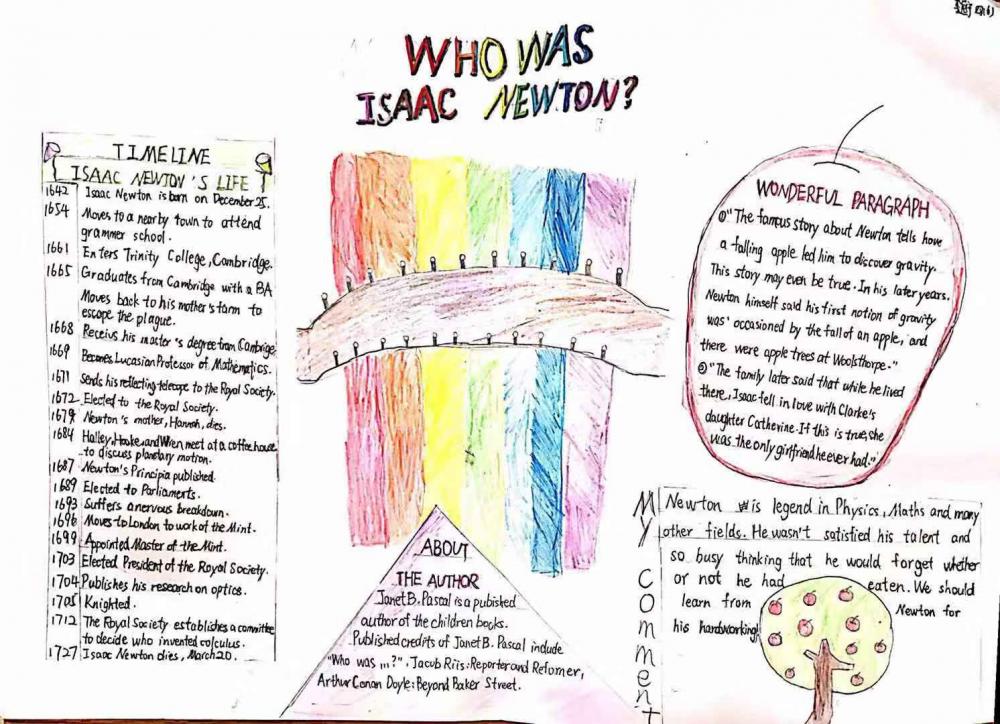 WHO WAS
ISAAC NEWTON?
TIMELINE
ISAAC NEWTON'S LIFE
1642 Isaac Newton is born on December 25.
1654 Moves to a nearby town to attend
grammer school.
1661 Enters Trinity College, Cambridge.
1665 Graduates from Cambridge with a BA
Moves back to his mother's farm to
escape the plague.
1668 Receius his master's degree from Cambrige
1669 Becomes Lucasian Professor of Mathematics.
1671 Sends his reflecting telescope to the Royal Society.
1672 Elected to the Royal Society.
1679 Newton's mother, Hannah, dies.
1684 Halley, Hooke, and Wren meet at a coffee house
to discuss planetary motion.
1687 Newton's Principia published.
1689 Elected to Parliaments.
1693 Suffers a nervous breakdown.
1696 Moves to London to work of the Mint.
1699 Appointed Master of the Mint.
1703 Elected President of the Royal Society.
1704 Publishes his research on optics.
1705 Knighted.
1712 The Royal Society establishes a committee
to decide who invented calculus.
1727 Isaac Newton dies, March 20.
ABOUT
THE AUTHOR
Janet B. Pascal is a pubished
author of the children books.
Published credits of Janet B. Pascal include
"Who was ...?". Jacub Riis: Reporter and Refomer,
Arthur Conan Doyle: Beyond Baker Street.
WONDERFUL PARAGRAPH
① "The famous story about Newton tells how
a falling apple led him to discover gravity.
This story may even be true. In his later years.
Newton himself said his first notion of gravity
was' occasioned by the fall of an apple, and
there were apple trees at Woolsthorpe."
② "The family later said that while he lived
there, Isaac fell in love with Clarke's
daughter Catherine. If this is true, she
was the only girlfriend he ever had."
My comment
Newton is legend in Physics, Maths and many
other fields. He wasn't satisfied his talent and
so busy thinking that he would forget whether
or not he had eaten. We should
learn from Newton for
his hardworking!